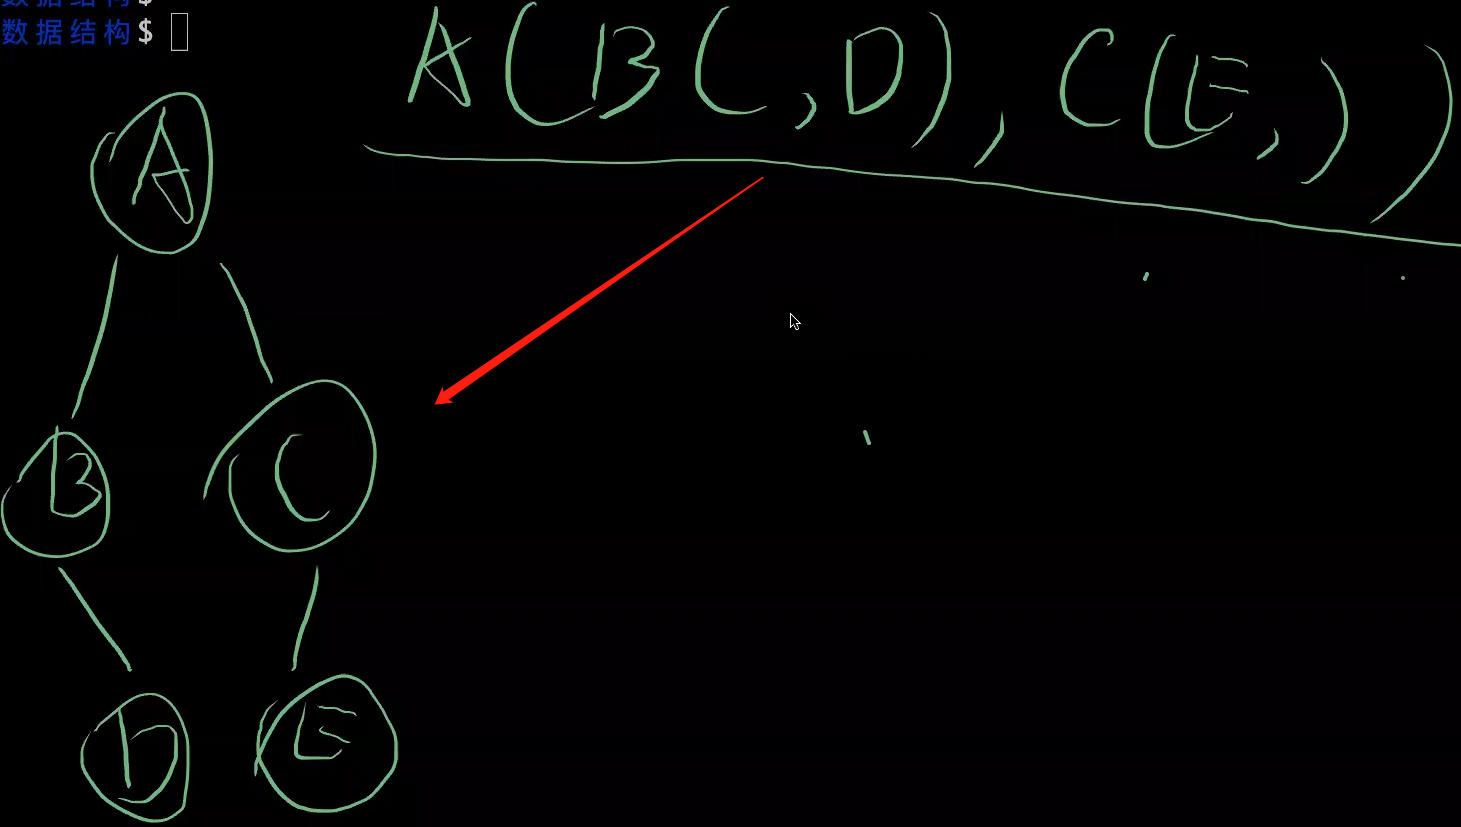 数据结构$
数据结构$
A(B(,D),C(E,))
A
B C
D E